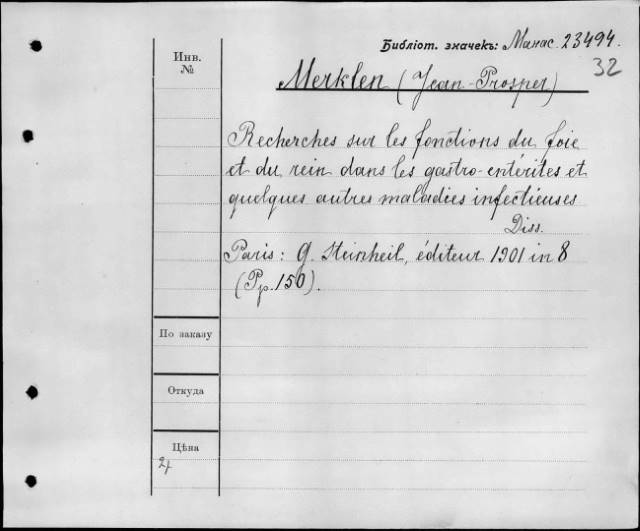 Библіот. значекъ: Манас. 23494.
32
Инв.
№
Merklen (Jean-Prosper)
Recherches sur les fonctions du foie
et du rein dans les gastro-entérites et
quelques autres maladies infectieuses
Diss.
Paris: G. Steinheil, éditeur 1901 in 8
(Pp. 150).
По заказу
Откуда
Цѣна